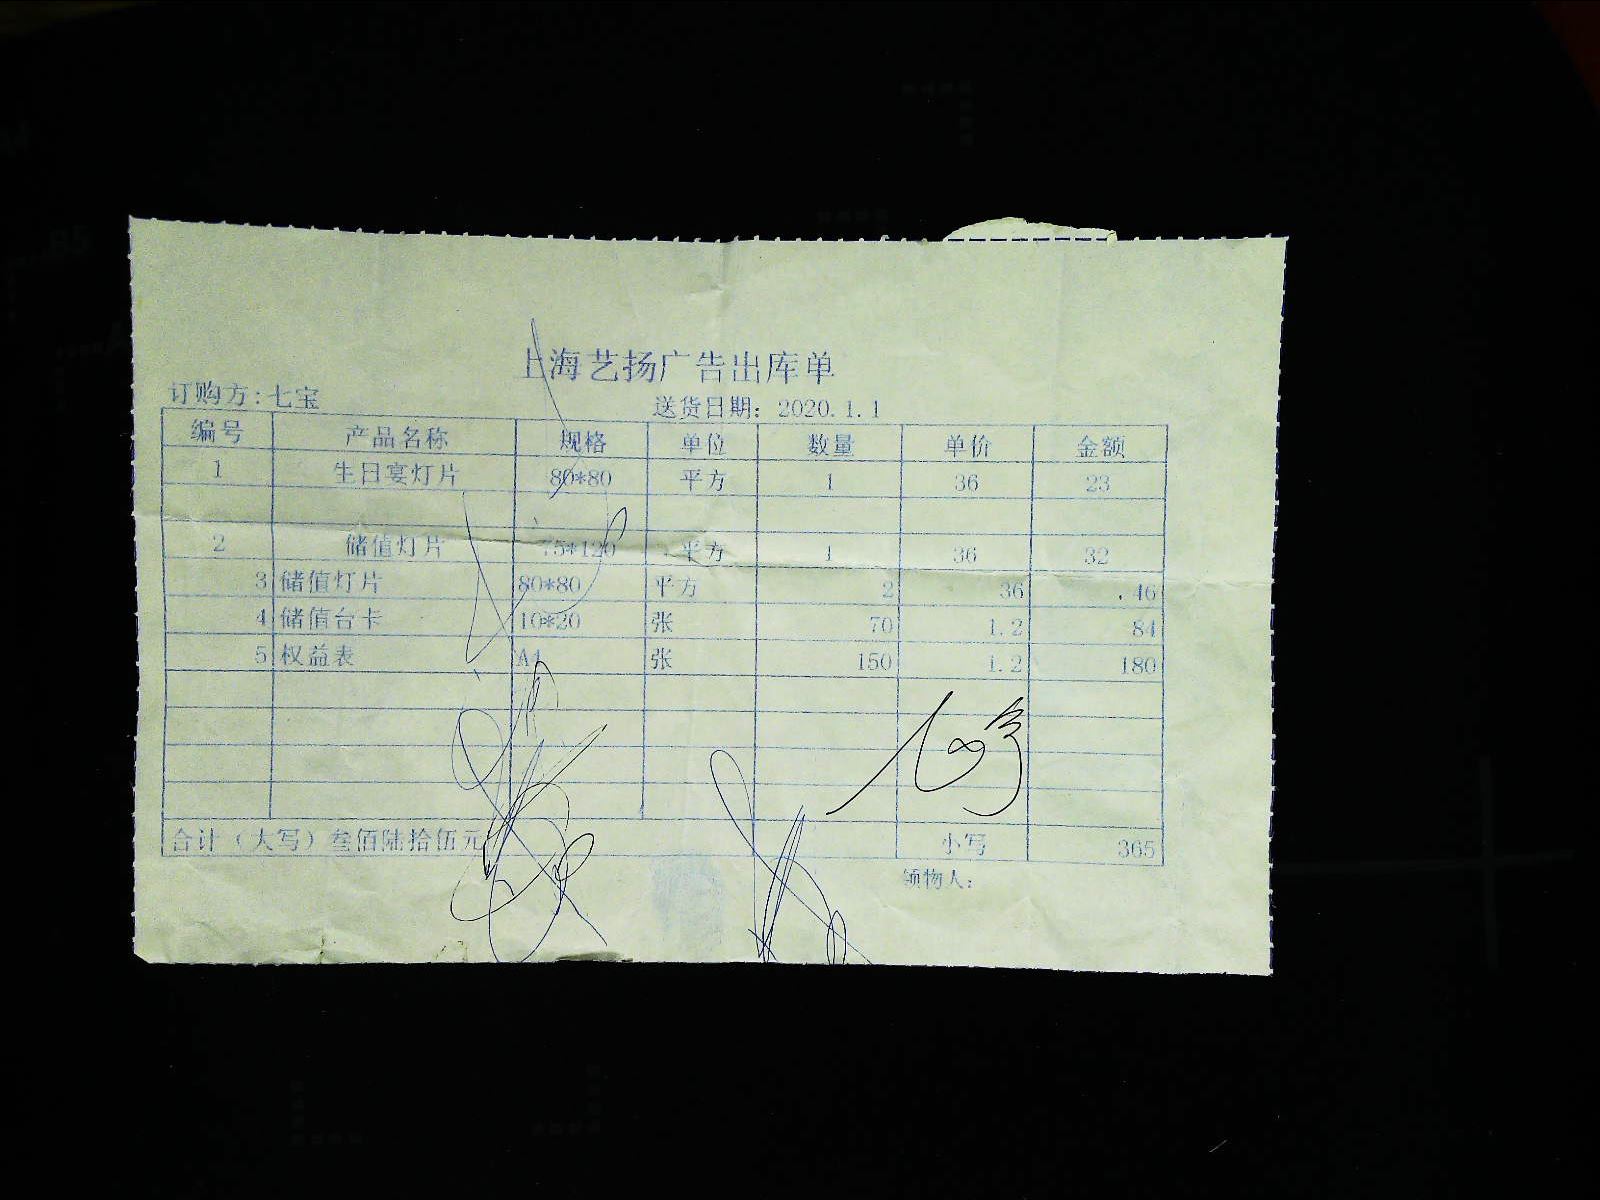 上海艺扬广告出库单
订购方:七宝 送货日期: 2020.1.1
编号 产品名称 规格 单位 数量 单价 金额
1 生日宴灯片 80*80 平方 1 36 23
2 储值灯片 75*120 平方 1 36 32
3 储值灯片 80*80 平方 2 36 .46
4 储值台卡 10*20 张 70 1.2 84
5 权益表 A4 张 150 1.2 180
合计（大写）叁佰陆拾伍元 小写 365
领物人: